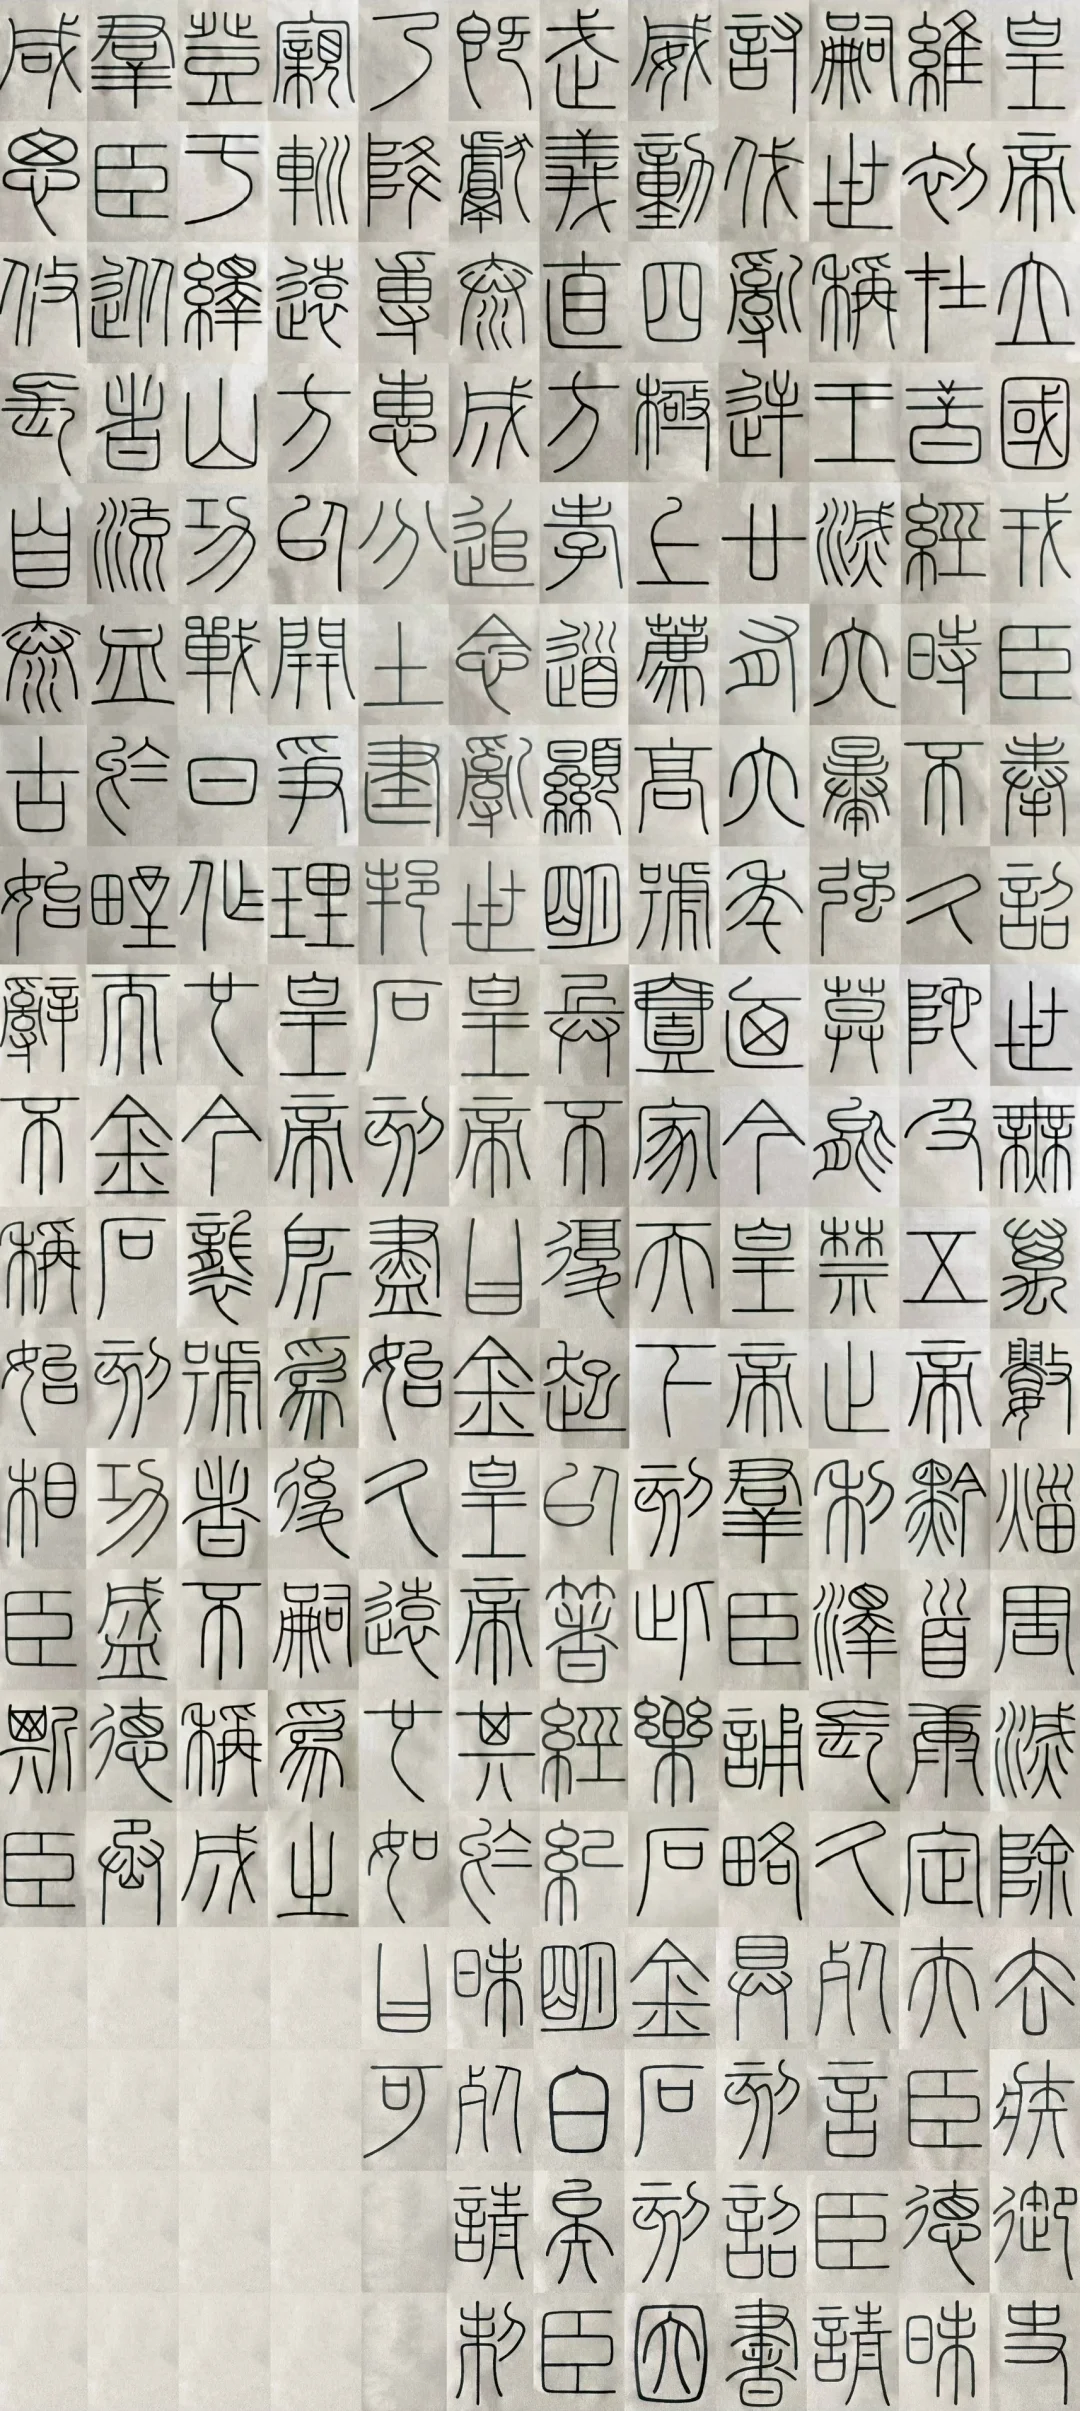 皇帝立國
維初在昔
嗣世稱王
討伐亂逆
威動四極
武義直方
既獻泰成
乃降專惠
親巡遠方
登于繹山
羣臣從者
咸思攸長
戎臣奉詔
經時不久
滅六暴强
廿有六年
上薦高號
孝道顯明
追念亂世
分土建邦
以開爭理
功戰日作
流血於野
自泰古始
世無萬數
陀及五帝
莫能禁止
迺今皇帝
壹家天下
兵不復起
皇帝曰金
石刻盡始
皇帝所爲
也今襲號
而金石刻
辭不稱始
災害滅除
黔首康定
利澤長久
羣臣誦略
刻此樂石
以著經紀
皇帝其於
久遠也如
後嗣爲之
者不稱成
功盛德丞
相臣斯臣
去疾御史
夫臣德昧
死言臣請
具刻詔書
金石刻因
明白矣臣
昧死請制
曰可